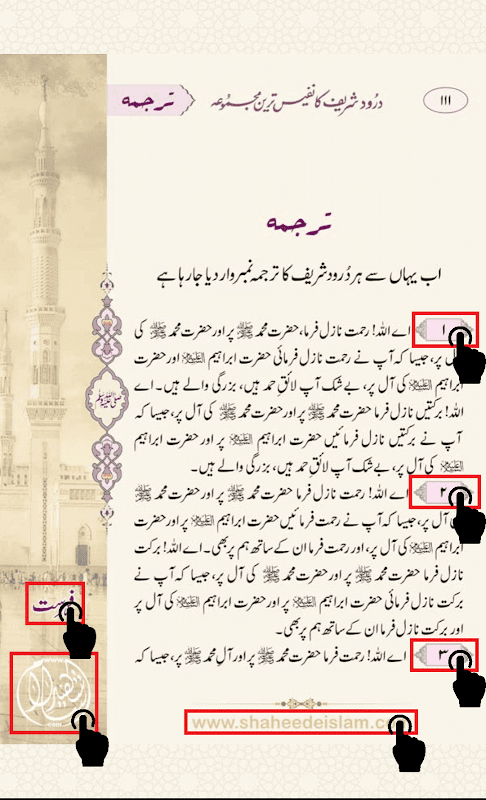 ترجمہ
درُود شریف کا نفیس ترین مجموعہ
۱۱۱
ترجمہ
اب یہاں سے ہر دُرود شریف کا ترجمہ نمبر وار دیا جا رہا ہے
۱ اے اللہ! رحمت نازل فرما، حضرت محمد ﷺ پر اور حضرت محمد ﷺ کی
پر، جیسا کہ آپ نے رحمت نازل فرمائی حضرت ابراہیم علیہ السلام اور حضرت
ابراہیم علیہ السلام کی آل پر، بے شک آپ لائقِ حمد ہیں، بزرگی والے ہیں۔ اے
اللہ! برکتیں نازل فرما حضرت محمد ﷺ پر اور حضرت محمد ﷺ کی آل پر، جیسا کہ
آپ نے برکتیں نازل فرمائیں حضرت ابراہیم علیہ السلام پر اور حضرت ابراہیم
علیہ السلام کی آل پر، بے شک آپ لائقِ حمد ہیں، بزرگی والے ہیں۔
۲ اے اللہ! رحمت نازل فرما حضرت محمد ﷺ پر اور حضرت محمد ﷺ
کی آل پر، جیسا کہ آپ نے رحمت نازل فرمائیں حضرت ابراہیم علیہ السلام پر اور حضرت
ابراہیم علیہ السلام کی آل پر، اور رحمت فرما ان کے ساتھ ہم پر بھی۔ اے اللہ! برکت
نازل فرما حضرت محمد ﷺ پر اور حضرت محمد ﷺ کی آل پر، جیسا کہ آپ نے
برکت نازل فرمائی حضرت ابراہیم علیہ السلام پر اور حضرت ابراہیم علیہ السلام کی آل پر
اور برکت نازل فرما ان کے ساتھ ہم پر بھی۔
۳ اے اللہ! رحمت فرما حضرت محمد ﷺ پر اور آلِ محمد ﷺ پر، جیسا کہ
فہرست
www.shaheedeislam.c